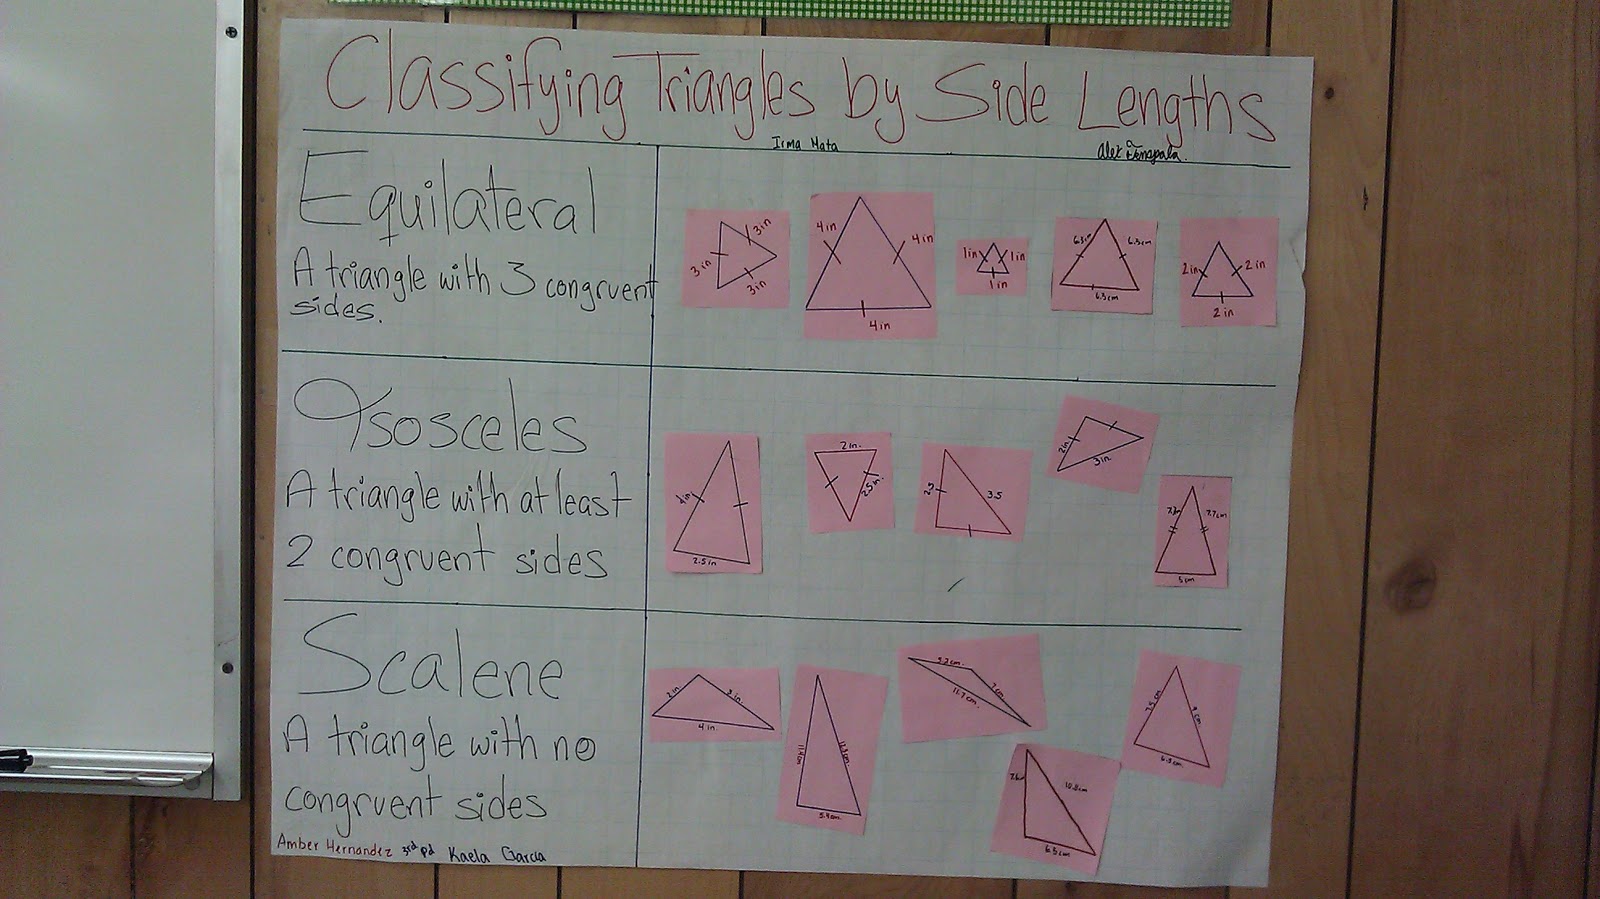 Classifying Triangles by Side Lengths
Irma Mata
Alex
Equilateral
A triangle with 3 congruent
sides.
3in
3in
3in
4in
4in
4in
1in
1in
1in
6.3cm
6.3cm
2in
2in
2in
Isosceles
A triangle with at least
2 congruent sides
4in
2.5in
2in.
2.5in.
2.5
3.5
2in
3in
7.7cm
5cm
Scalene
A triangle with no
congruent sides
2in
3in
4in.
11.4cm
12.3cm.
5.4cm.
5.2cm.
7cm
11.7cm.
7.6
10.8cm
6.5cm
7.5cm
9cm.
6.5cm.
Amber Hernandez 3rd pd Kaela Garcia